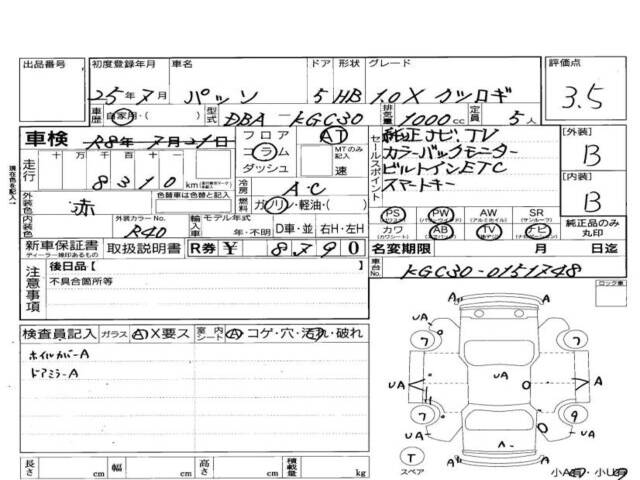 出品番号 初度登録年月 車名 ドア 形状 グレード 評価点
25年7月 パッソ 5 HB 1.0X クツロギ 3.5
車歴 自家用・( ) 型式 DBA-KGC30 排気量 1000cc 定員 5人
車検 R8年7月21日 フロア AT セールスポイント 純正ナビ、TV [外装]
走行 十万千百十一 コラム MTのみ記入 カラーバックモニター B
8310 km ダッシュ 速 ビルトインETC
冷房 A・C スマートキー [内装]
外装色 赤 色替車は色替前の色 燃料 ガソリン・軽油・( ) B
PS PW AW SR
(パワステ) (パワーウインド) (アルミホイル) (サンルーフ)
内装色 外装カラーNo. R40 輸入車 モデル年式 年・不明 D車・並 右H・左H カワ AB TV ナビ 純正品のみ丸印
(カワシート) (エアバッグ)
新車保証書 取扱説明書 R券 ¥ 8790 名変期限 月 日迄
ディーラー捺印あるもの
注意事項 後日品【 】 車台No. KGC30-0151748
不具合箇所等 ロック車
検査員記入 ガラス A X要ス 室内シート A コゲ・穴・汚れ・破れ
ホイルカバーA
ドアミラーA
A A
7 7
UA UA
A A
UA UA
7 9
T
スペア
A A
小A有・小U有
長さ cm 幅 cm 高さ cm 積載量 kg
現在色を記入